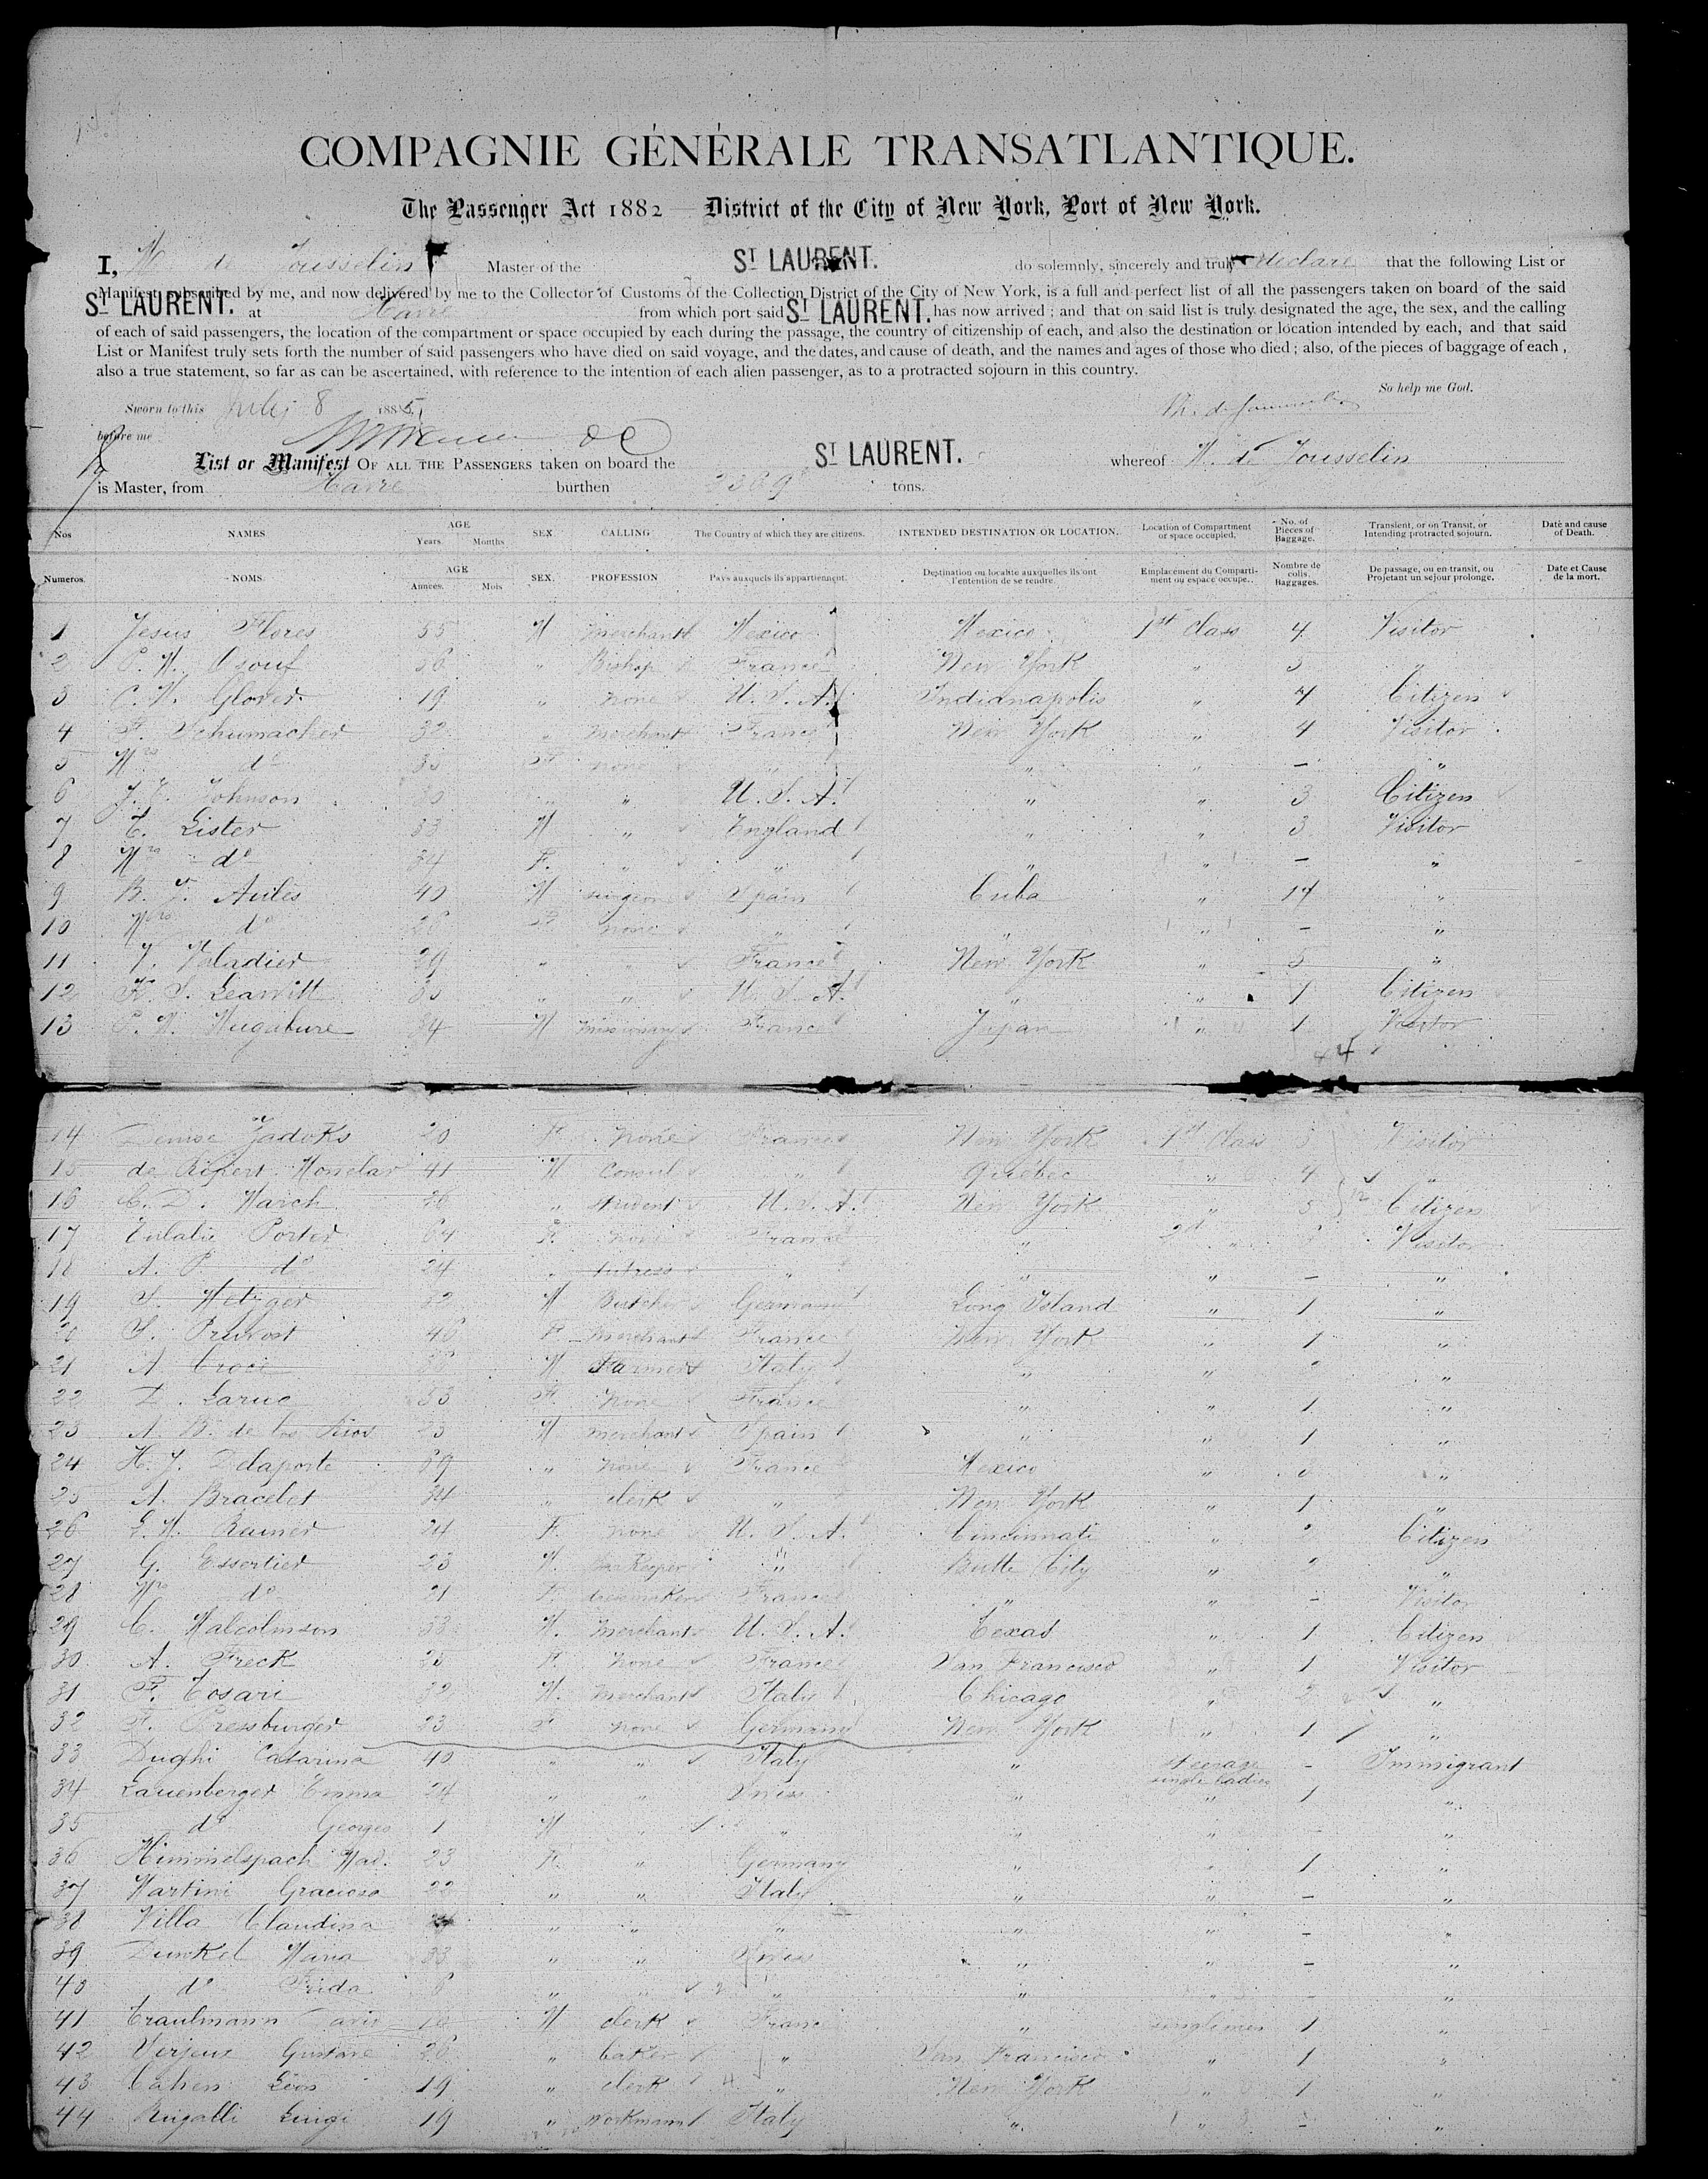 COMPAGNIE GÉNÉRALE TRANSATLANTIQUE.
The Passenger Act 1882 — District of the City of New York, Port of New York.
I, M de Jousselin Master of the ST LAURENT. do solemnly, sincerely and truly declare that the following List or
Manifest subscribed by me, and now delivered by me to the Collector of Customs of the Collection District of the City of New York, is a full and perfect list of all the passengers taken on board of the said
ST LAURENT. at Havre from which port said ST LAURENT. has now arrived ; and that on said list is truly designated the age, the sex, and the calling
of each of said passengers, the location of the compartment or space occupied by each during the passage, the country of citizenship of each, and also the destination or location intended by each, and that said
List or Manifest truly sets forth the number of said passengers who have died on said voyage, and the dates, and cause of death, and the names and ages of those who died ; also, of the pieces of baggage of each ,
also a true statement, so far as can be ascertained, with reference to the intention of each alien passenger, as to a protracted sojourn in this country.
So help me God.
Sworn to this July 8 1885
before me
List or Manifest OF ALL THE PASSENGERS taken on board the ST LAURENT. whereof M. de Jousselin
is Master, from Havre burthen 3309 tons.
Nos NAMES AGE Years. Months SEX CALLING The Country of which they are citizens. INTENDED DESTINATION OR LOCATION. Location of Compartment or space occupied, No. of Pieces of Baggage. Transient, or on Transit, or Intending protracted sojourn. Date and cause of Death.
Numeros. NOMS AGE Années. Mois SEX. PROFESSION Pays auxquels ils appartiennent. Destination ou localite auxquelles ils ont l'entention de se rendre. Emplacement du Comparti-ment ou espace occupe. Nombre de colis, Baggages. De passage, ou en transit, ou Projetant un sejour prolonge. Date et Cause de la mort.
1 Jesus Flores 55 M merchant Mexico Mexico 1st Class 4 Visitor
2 P. M. Osouf 56 " Bishop France New York " 5 "
3 C. M. Glover 19 " none U. S. A. Indianapolis " 4 Citizen
4 F. Schumacher 32 " merchant France New York " 4 Visitor
5 Mrs do 35 F none " " " — "
6 J. J. Johnson 30 " " U. S. A. " " 3 Citizen
7 T. Lister 33 M " England " " 3 Visitor
8 Mrs do 34 F. " " " " — "
9 B. J. Aviles 40 M surgeon Spain Cuba " 14 "
10 Mrs do 26 F none " " " — "
11 V. Valadier 29 " " France New York " 5 "
12 F. S. Leawitt 35 " " U. S. A. " " 1 Citizen
13 P. M. Mugabure 34 M missionary France Japan " 1 Visitor
44
14 Denise Jadoks 20 F. none France New York 1st Class 3 Visitor
15 de Ripert Monclar 41 M Consul " Québec " 4 "
16 C. D. March 26 " student U. S. A. New York " 5 Citizen
17 Eulalie Porter 64 F. none France " 2d " Visitor
18 A. P. do 24 " tutress " " " — "
19 S. Metzger 32 M Butcher Germany Long Island " 1 "
20 S. Pruvost 46 F. merchant France New York " 1 "
21 A Croce 36 M Farmer Italy " " 2 "
22 D. Larue 53 F. none France " " 1 "
23 A. B. de los Rios 23 M merchant Spain " " 1 "
24 H. J. Delaporte 39 " none France Mexico " 3 "
25 A. Bracelet 34 " clerk " New York " 1 "
26 L. M. Rainer 24 F. none U. S. A. Cincinnati " 2 Citizen
27 G. Essertier 23 M. Bar Keeper " Butte City " 2 "
28 Mrs do 21 F. dressmaker France " " — Visitor
29 C. Malcolmson 33 M. merchant U. S. A. Texas " 1 Citizen
30 A. Freck 25 F. none France San Francisco " 1 Visitor
31 F. Tosari 32 M. merchant Italy Chicago " 2 "
32 F. Pressburger 23 F none Germany New York " 1 "
33 Dughi Catarina 40 " " Italy " steerage single ladies - Immigrant
34 Lauenberger Emma 24 " " Swiss " " 1 "
35 do Georges 1 M " " " " - "
36 Himmelspach Mad. 23 F. " Germany " " 1 "
37 Martini Graciosa 22 " " Italy " " — "
38 Villa Claudina " " " " " - "
39 Dunkel Maria 33 " " Swiss " " - "
40 do Frida 6 " " " " " - "
41 Traulmann M clerk France " single men 1 "
42 Verjeux Gustave 26 " baker " San Francisco " 1 "
43 Cahen Léon 19 " clerk " New York " 1 "
44 Rigalli Luigi 19 " workmann Italy " " - "